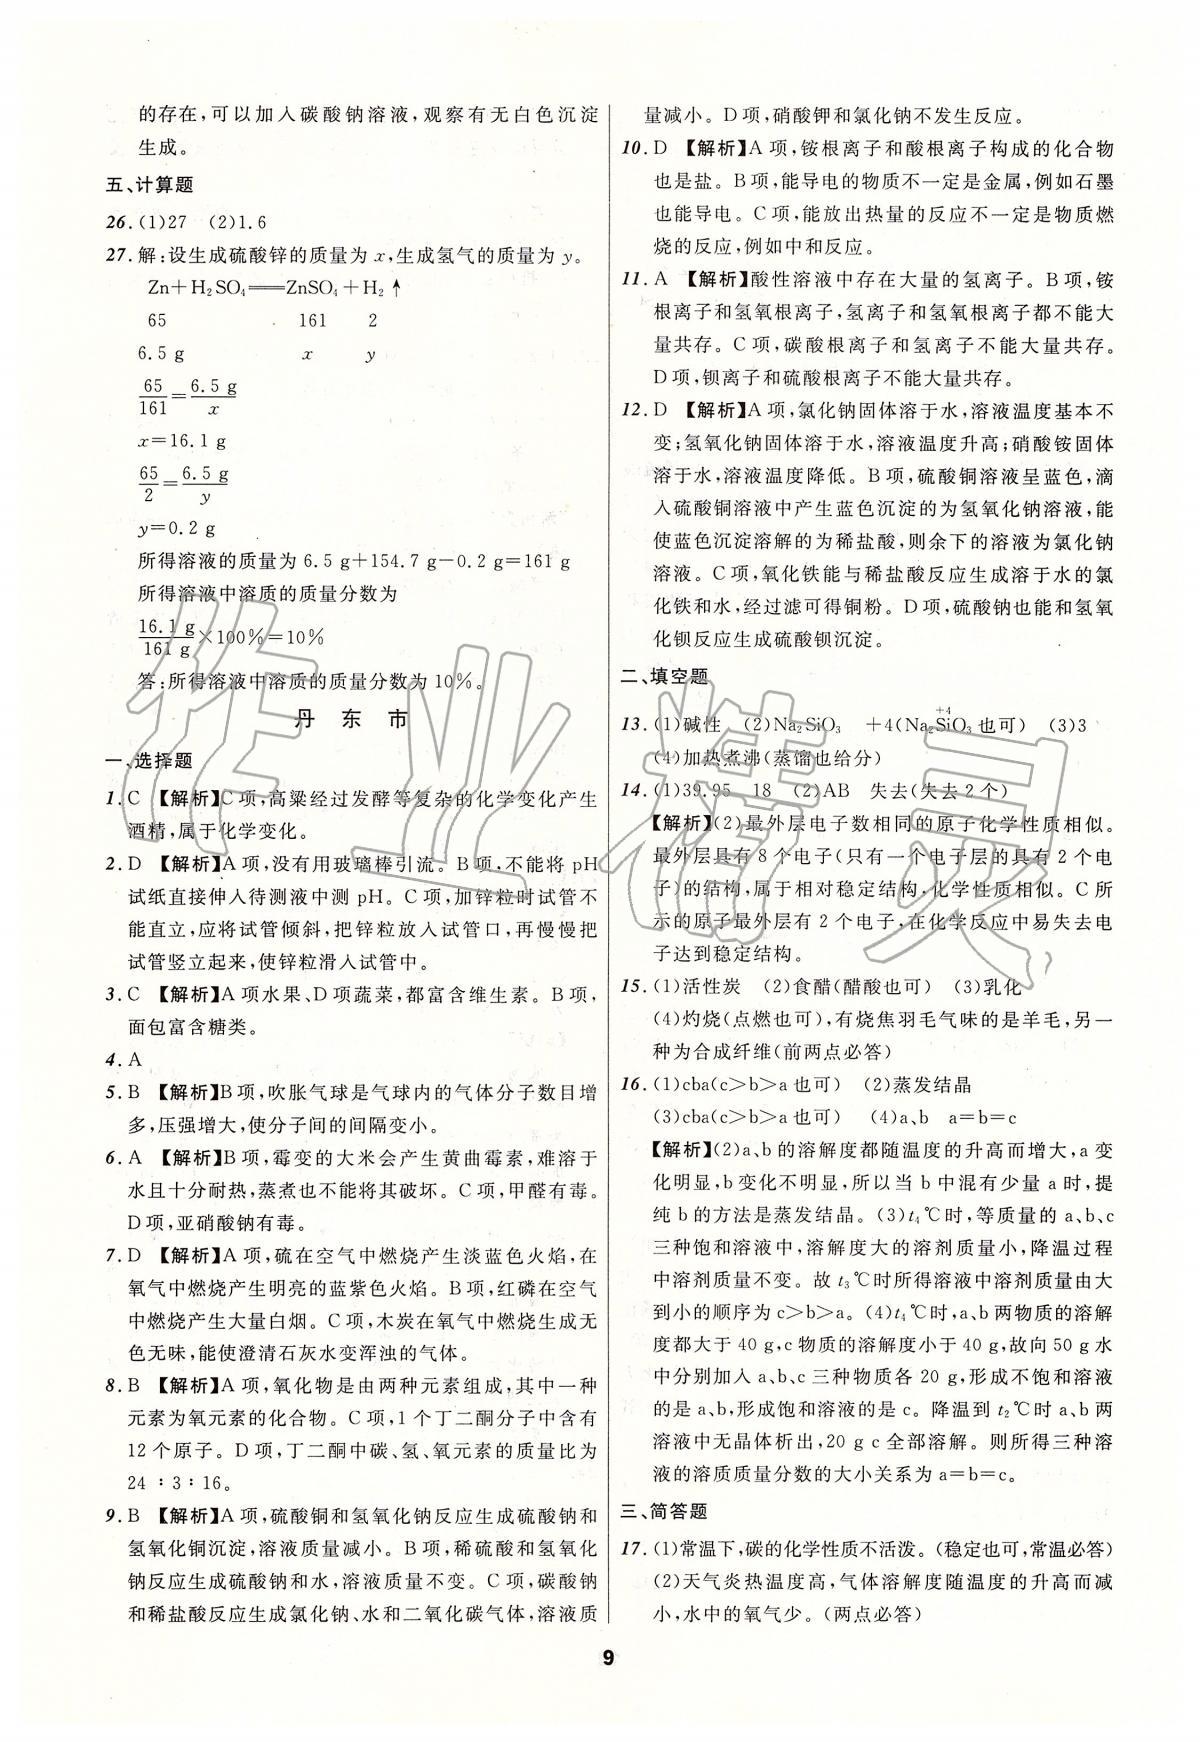 的存在,可以加入碳酸钠溶液,观察有无白色沉淀
生成。
五、计算题
26.(1)27 (2)1.6
27.解:设生成硫酸锌的质量为 x,生成氢气的质量为 y。
Zn+H₂SO₄══ZnSO₄+H₂↑
65 161 2
6.5 g x y
65/161=6.5 g/x
x=16.1 g
65/2=6.5 g/y
y=0.2 g
所得溶液的质量为 6.5 g+154.7 g-0.2 g=161 g
所得溶液中溶质的质量分数为
16.1 g/161 g×100%=10%
答:所得溶液中溶质的质量分数为 10%。
丹 东 市
一、选择题
1.C 【解析】C 项,高粱经过发酵等复杂的化学变化产生
酒精,属于化学变化。
2.D 【解析】A 项,没有用玻璃棒引流。B 项,不能将 pH
试纸直接伸入待测液中测 pH。C 项,加锌粒时试管不
能直立,应将试管倾斜,把锌粒放入试管口,再慢慢把
试管竖立起来,使锌粒滑入试管中。
3.C 【解析】A 项水果、D 项蔬菜,都富含维生素。B 项,
面包富含糖类。
4.A
5.B 【解析】B 项,吹胀气球是气球内的气体分子数目增
多,压强增大,使分子间的间隔变小。
6.A 【解析】B 项,霉变的大米会产生黄曲霉素,难溶于
水且十分耐热,蒸煮也不能将其破坏。C 项,甲醛有毒。
D 项,亚硝酸钠有毒。
7.D 【解析】A 项,硫在空气中燃烧产生淡蓝色火焰,在
氧气中燃烧产生明亮的蓝紫色火焰。B 项,红磷在空气
中燃烧产生大量白烟。C 项,木炭在氧气中燃烧生成无
色无味,能使澄清石灰水变浑浊的气体。
8.B 【解析】A 项,氧化物是由两种元素组成,其中一种
元素为氧元素的化合物。C 项,1 个丁二酮分子中含有
12 个原子。D 项,丁二酮中碳、氢、氧元素的质量比为
24∶3∶16。
9.B 【解析】A 项,硫酸铜和氢氧化钠反应生成硫酸钠和
氢氧化铜沉淀,溶液质量减小。B 项,稀硫酸和氢氧化
钠反应生成硫酸钠和水,溶液质量不变。C 项,碳酸钠
和稀盐酸反应生成氯化钠、水和二氧化碳气体,溶液质
量减小。D 项,硝酸钾和氯化钠不发生反应。
10.D 【解析】A 项,铵根离子和酸根离子构成的化合物
也是盐。B 项,能导电的物质不一定是金属,例如石墨
也能导电。C 项,能放出热量的反应不一定是物质燃
烧的反应,例如中和反应。
11.A 【解析】酸性溶液中存在大量的氢离子。B 项,铵
根离子和氢氧根离子,氢离子和氢氧根离子都不能大
量共存。C 项,碳酸根离子和氢离子不能大量共存。
D 项,钡离子和硫酸根离子不能大量共存。
12.D 【解析】A 项,氯化钠固体溶于水,溶液温度基本不
变;氢氧化钠固体溶于水,溶液温度升高;硝酸铵固体
溶于水,溶液温度降低。B 项,硫酸铜溶液呈蓝色,滴
入硫酸铜溶液中产生蓝色沉淀的为氢氧化钠溶液,能
使蓝色沉淀溶解的为稀盐酸,则余下的溶液为氯化钠
溶液。C 项,氧化铁能与稀盐酸反应生成溶于水的氯
化铁和水,经过滤可得铜粉。D 项,硫酸钠也能和氢氧
化钡反应生成硫酸钡沉淀。
二、填空题
13.(1)碱性 (2)Na₂SiO₃ +4(Na₂S⁺⁴iO₃也可) (3)3
(4)加热煮沸(蒸馏也给分)
14.(1)39.95 18 (2)AB 失去(失去 2 个)
【解析】(2)最外层电子数相同的原子化学性质相似。
最外层具有 8 个电子(只有一个电子层的具有 2 个电
子)的结构,属于相对稳定结构,化学性质相似。C 所
示的原子最外层有 2 个电子,在化学反应中易失去电
子达到稳定结构。
15.(1)活性炭 (2)食醋(醋酸也可) (3)乳化
(4)灼烧(点燃也可),有烧焦羽毛气味的是羊毛,另一
种为合成纤维(前两点必答)
16.(1)cba(c>b>a 也可) (2)蒸发结晶
(3)cba(c>b>a 也可) (4)a、b a=b=c
【解析】(2)a、b 的溶解度都随温度的升高而增大,a 变
化明显,b 变化不明显,所以当 b 中混有少量 a 时,提
纯 b 的方法是蒸发结晶。(3)t₄℃时,等质量的 a、b、c
三种饱和溶液中,溶解度大的溶剂质量小,降温过程
中溶剂质量不变。故 t₃℃时所得溶液中溶剂质量由大
到小的顺序为 c>b>a。(4)t₄℃时,a、b 两物质的溶解
度都大于 40 g,c 物质的溶解度小于 40 g,故向 50 g 水
中分别加入 a、b、c 三种物质各 20 g,形成不饱和溶液
的是 a、b,形成饱和溶液的是 c。降温到 t₂℃时 a、b 两
溶液中无晶体析出,20 g c 全部溶解。则所得三种溶
液的溶质质量分数的大小关系为 a=b=c。
三、简答题
17.(1)常温下,碳的化学性质不活泼。(稳定也可,常温必答)
(2)天气炎热温度高,气体溶解度随温度的升高而减
小,水中的氧气少。(两点必答)
9
作业精灵